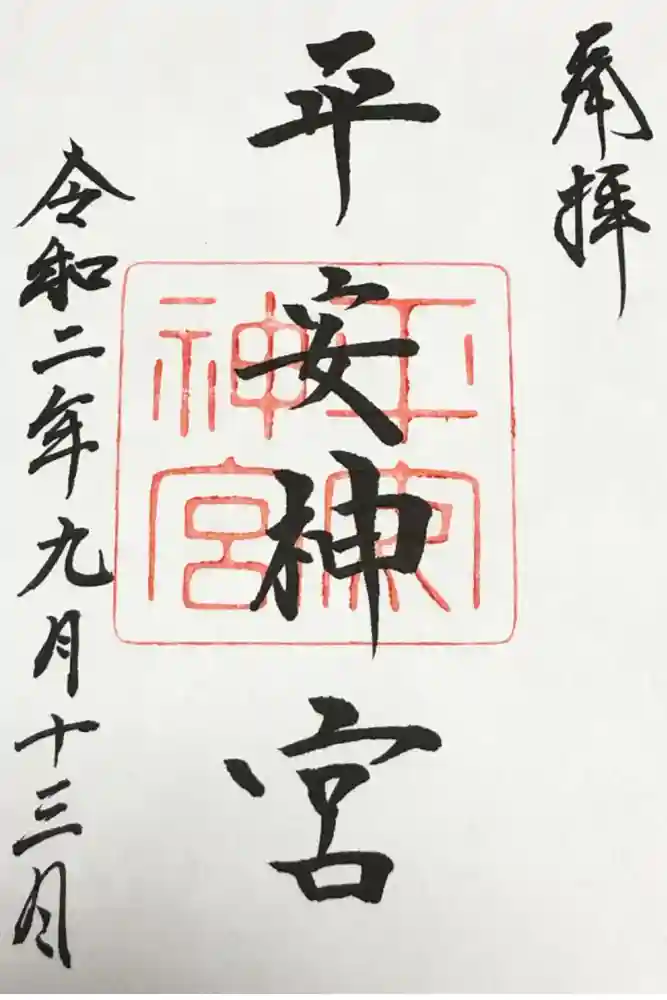 奉拝
平安神宮
平安神宮
令和二年九月十三日